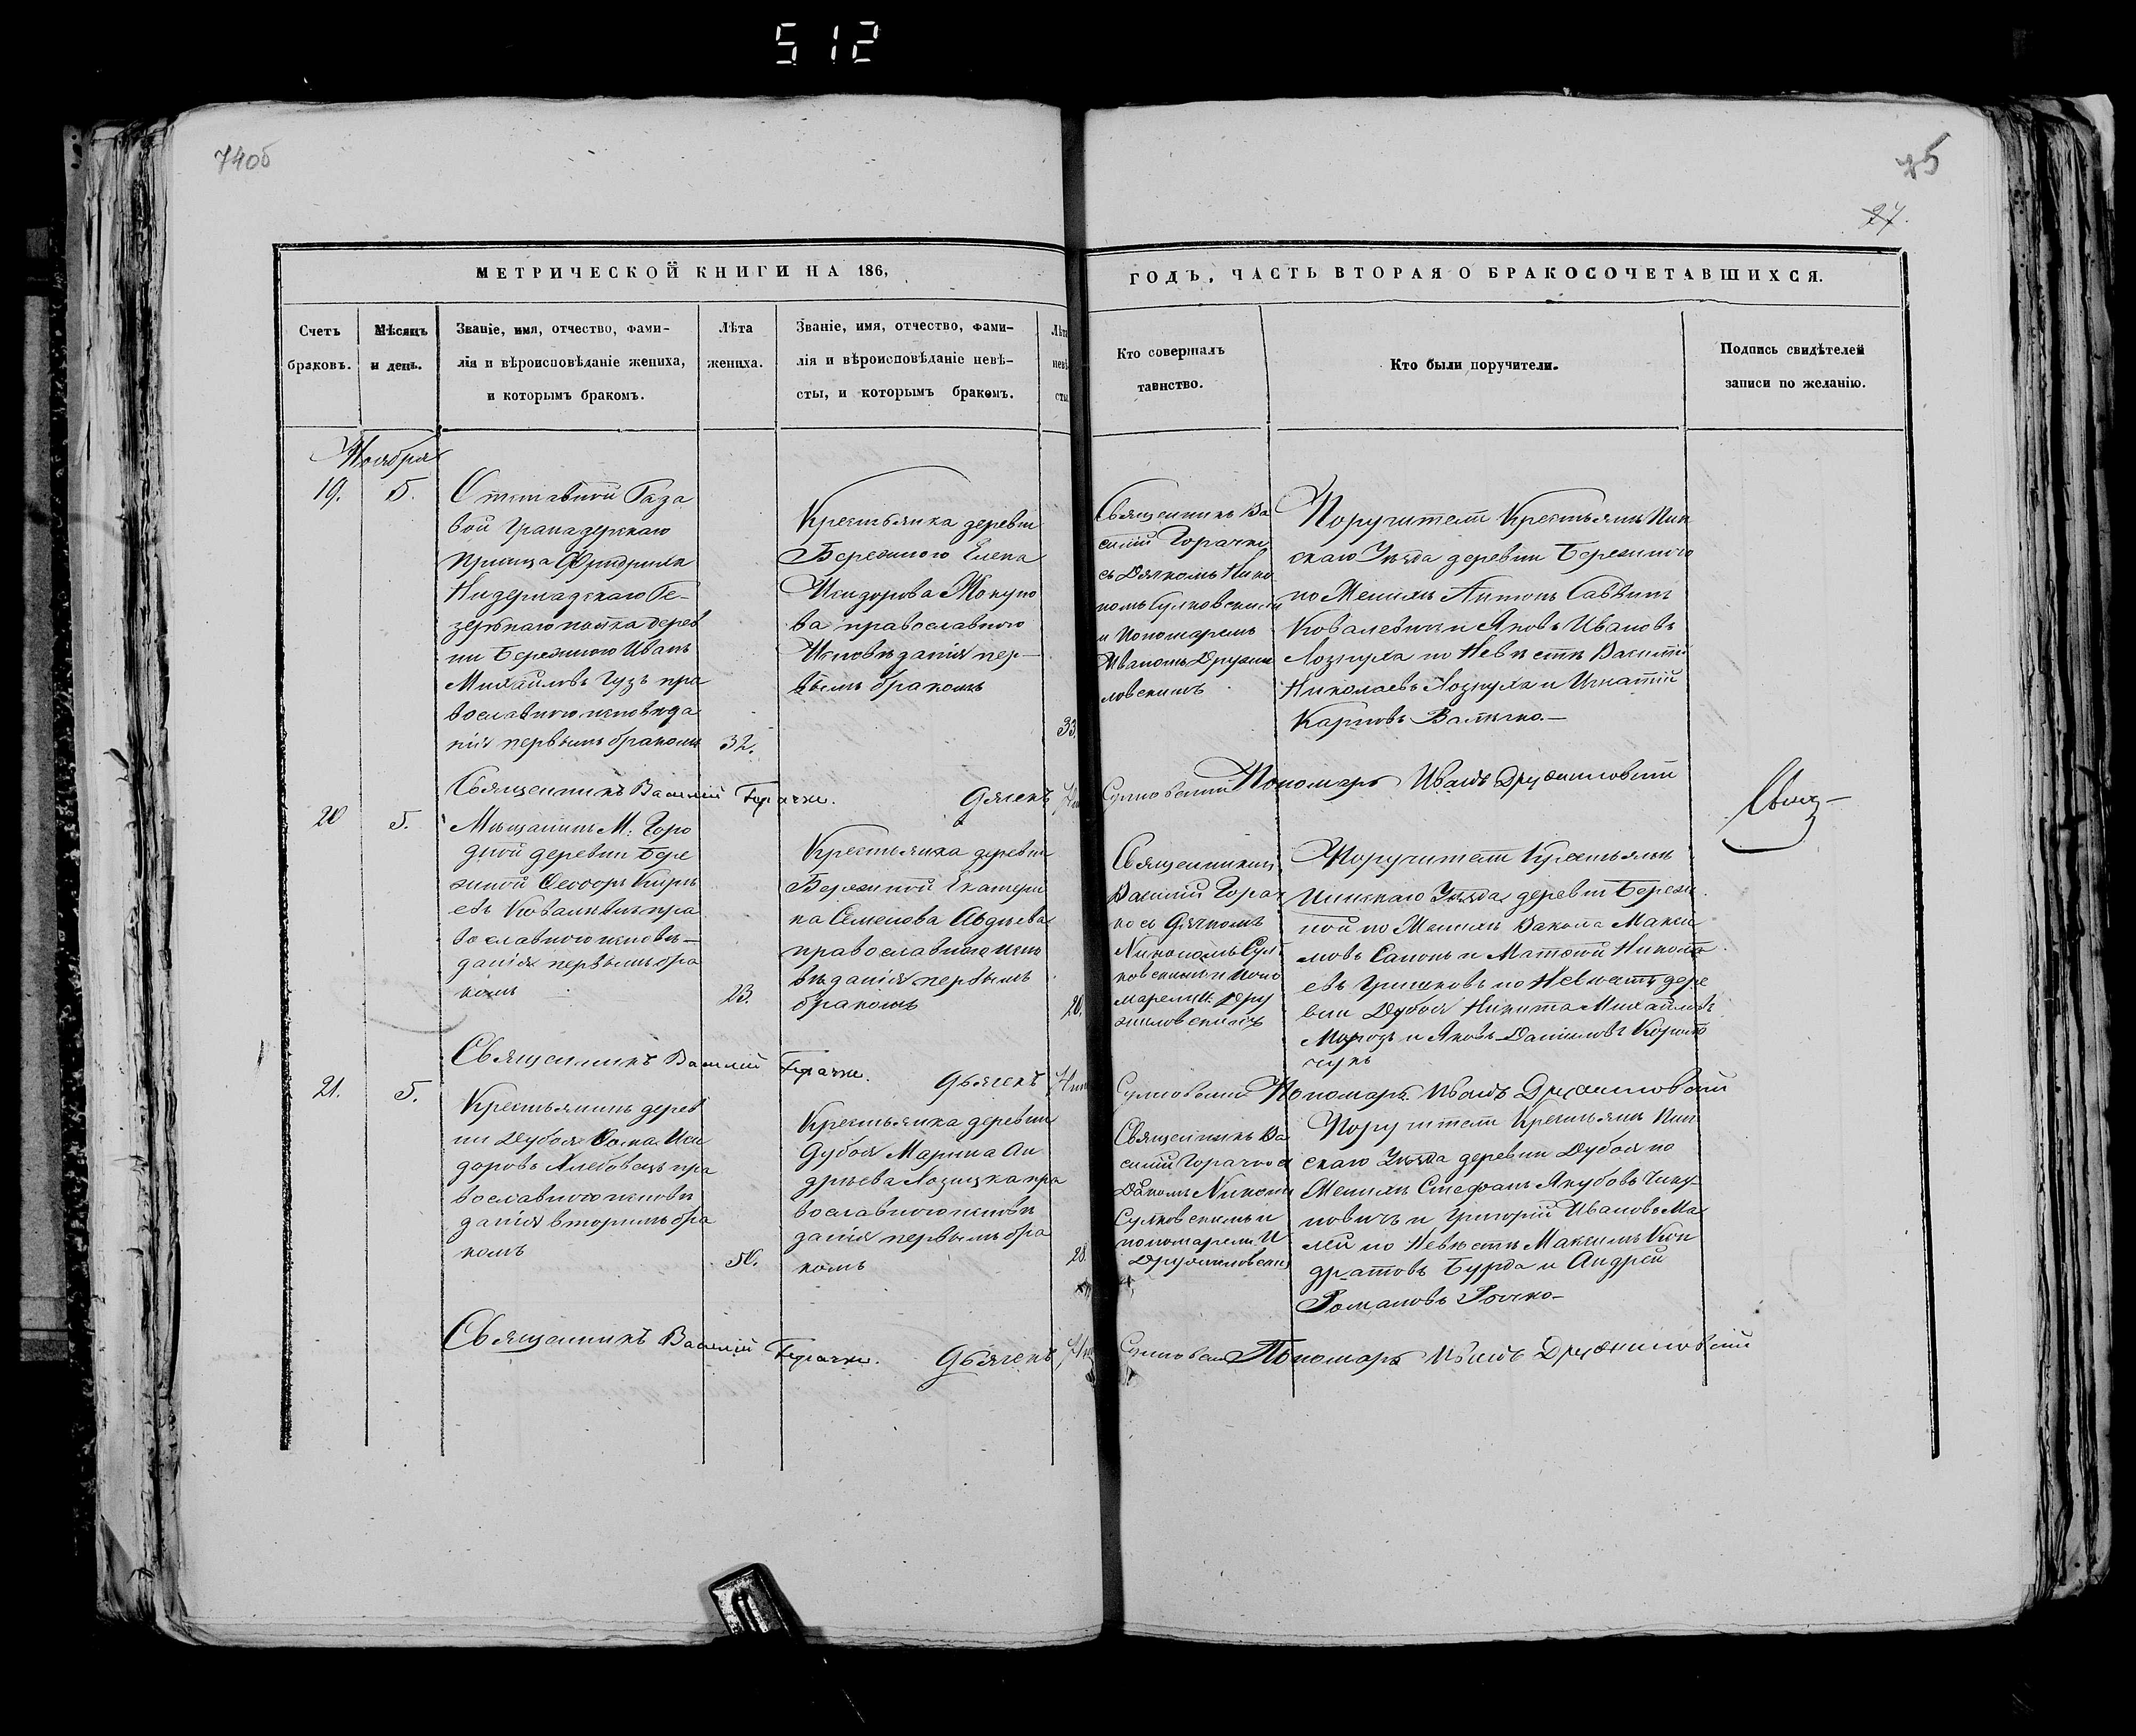 512
74об
25
27.
МЕТРИЧЕСКОЙ КНИГИ НА 186,
ГОДЪ, ЧАСТЬ ВТОРАЯ О БРАКОСОЧЕТАВШИХСЯ.
Счетъ
браковъ.
Мѣсяцъ
и день.
Званіе, имя, отчество, фами-
лія и вѣроисповѣданіе жениха,
и которымъ бракомъ.
Лѣта
жениха.
Званіе, имя, отчество, фами-
лія и вѣроисповѣданіе невѣ-
сты, и которымъ бракомъ.
Лѣта
невѣ
сты
Кто совершалъ
таинство.
Кто были поручители.
Подпись свидѣтелей
записи по желанію.
Ноября
19.
5.
Отставной
вой Гранадерскаго
Принца Фридриха
Нидерладскаго
полка дерев
ни Бережного Иванъ
Михайловъ Гузъ пра
вославного исповѣда
нія первымъ бракомъ
32.
Крестьянка деревни
Бережного Елена
Исидорова
ва православного
Исповѣданія пер-
вымъ бракомъ
33.
Священникъ Ва
силій Горачко
съ Дьячкомъ Нико
номъ Сулковскимъ
и Пономаремъ
Иваномъ Дружи
ловскимъ
Поручители Крестьяне Пин
скаго Уѣзда деревни Бережного
по Женихѣ Антонъ Саввинъ
Ковалевичъ и Яковъ Ивановъ
Лознуха по Невѣстѣ Василій
Николаевъ Лознуха и Игнатій
Карповъ
Священникъ Василій Горачко.
Дьячекъ
Сулковскій
Пономарь Иванъ Дружиловскій
20
5.
Мѣщанинъ М. Горо
дной деревни Бере
жной Ѳеодоръ
евъ пра
вославного исповѣ-
данія первымъ бра
комъ
23.
Крестьянка деревни
Бережной Екатери
на Семенова Авдѣева
православного испо
вѣданія первымъ
бракомъ
20.
Священникъ
Василій Горач
ко съ Дьячкомъ
Никономъ Сул
ковскимъ и поно
маремъ И. Дру
жиловскимъ
Поручители Крестьяне
Пинскаго Уѣзда деревни Бережной
по Женихѣ Вакола Макси
мовъ и Матѳей Никола
евъ Гришковъ по Невѣстѣ дере
вни Дубоя Никита Михайловъ
Морозъ и Яковъ Даниловъ
чукъ
Священникъ Василій Горачко.
Дьячекъ
Сулковскій
Пономарь Иванъ Дружиловскій
21.
5.
Крестьянинъ дерев
ни Дубоя Ѳома Иси
доровъ Хлебовецъ пра
вославного исповѣ
данія вторымъ бра
комъ
50.
Крестьянка деревни
Дубоя Марина Ан
дрѣева Лозицка пра
вославного исповѣ
данія первымъ бра
комъ
28.
Священникъ Ва
силій Горачко съ
Дьякомъ Никоном
Сулковскимъ и
пономаремъ И
Дружиловским
Поручители Крестьяне Пин
скаго Уѣзда деревни Дубоя по
Женихѣ Стефанъ Якубовъ
новичъ и Григорій Ивановъ Ма
лей по Невѣстѣ Максимъ Кон
дратовъ Бурда и Андрей
Романовъ
Священникъ Василій Горачко.
Дьячекъ
Сулковскій
Пономарь Иванъ Дружиловскій